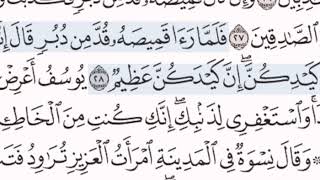 الصَّادِقِينَ ٢٧ فَلَمَّا رَءَا قَمِيصَهُۥ قُدَّ مِن دُبُرٍ قَالَ
كَيْدِكُنَّ ۖ إِنَّ كَيْدَكُنَّ عَظِيمٌ ٢٨ يُوسُفُ أَعْرِضْ
وَٱسْتَغْفِرِى لِذَنۢبِكِ ۖ إِنَّكِ كُنتِ مِنَ ٱلْخَاطِـِٔ
وَقَالَ نِسْوَةٌ فِى ٱلْمَدِينَةِ ٱمْرَأَتُ ٱلْعَزِيزِ تُرَٰوِدُ فَتَ